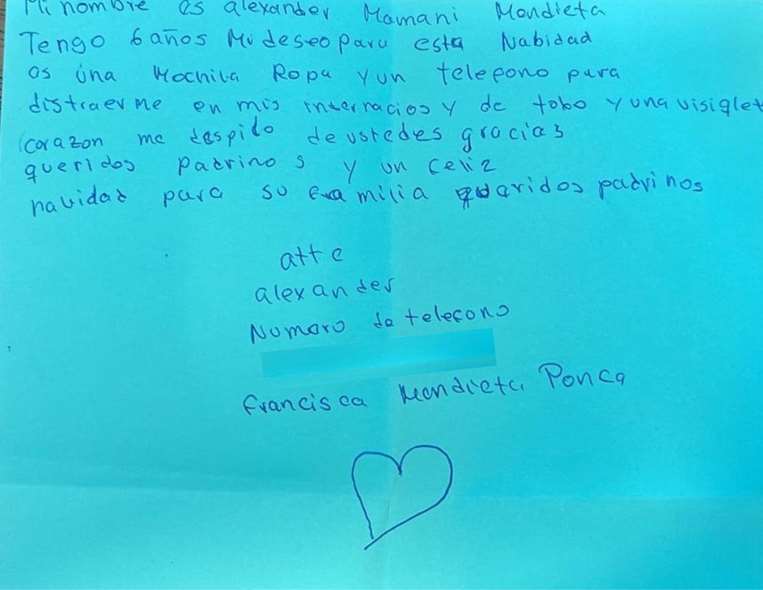 Mi nombre es alexander Mamani Mendieta
Tengo 6 años Mi deseo para esta Nabidad
es una Mochila Ropa y un telefono para
distraerme en mis internacios y de tobo y una visiglet
corazon me despido de ustedes gracias
queridos padrinos y un feliz
navidad para su familia queridos padrinos
atte
alexander
Numero de telefono
Francisca Mendieta Ponca